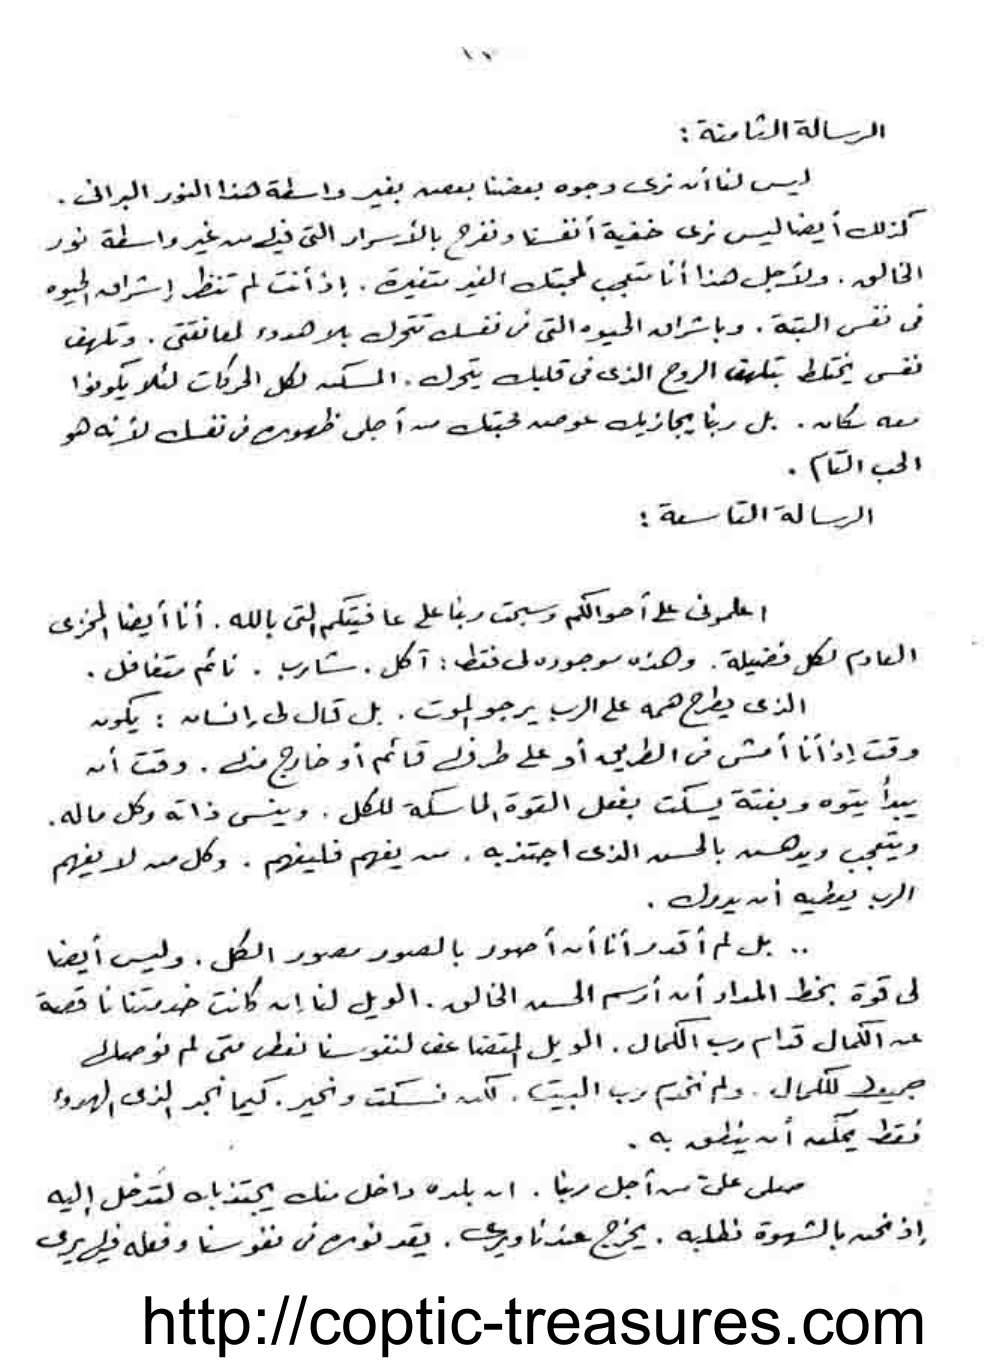 ١٧
الرسالة الثامنة :
ليس لنا أن نرى وجوه بعضنا بعض بغير واسطة هذا النور البرانى .
كذلك أيضا ليس نرى خفية أنفسنا ونفرح بالأسرار التى فيك من غير واسطة نور
الخالق . ولأجل هذا أنا متعجب لمحبتك الغير متغيرة . إذ أنت لم تنظر إشراق الحيوه
فى نفس البتة . وباشراق الحيوه التى فى نفسك تتحرك بلا هدوء لمعانقتى . وتلهف
نفسى يختلط بتلهف الروح الذى فى قلبك يتحرك . المسكن لكل الحركات لئلا يكونوا
معه سكان . بل ربنا يجازيك عوض محبتك من أجلى ظهوره فى نفسك لأنه هو
الحب التام .
الرسالة التاسعة :
اعلمونى على أحوالكم وسبحت ربنا على عافيتكم التى بالله . أنا أيضا المخزى
العادم لكل فضيلة . وهذه موجوده لى فقط : آكل . شارب . نائم متغافل .
الذى يطرح همه على الرب يرجو الموت . بل قال لى إنسان : يكون
وقت إذ أنا أمشى فى الطريق أو على طرفك قائم أو خارج منك . وقت أن
يبدأ يتوه وبغتة يسكت بفعل القوة الماسكة للكل . وينسى ذاته وكل ماله .
ويتعجب ويدهش بالحسن الذى اجتذبه . من يفهم فليفهم . وكل من لا يفهم
الرب يعطيه أن يدرك .
.. بل لم أقدر أنا أن أصور بالصور مصور الكل . وليس أيضا
لى قوة بخط المداد أن أرسم الحسن الخالق . الويل لنا إن كانت خدمتنا ناقصة
عن الكمال قدام رب الكمال . الويل المتضاعف لنفوسنا نعطى متى لم نوصلك
جميعك للكمال . ولم نخدم رب البيت . لكن نسكت ونحير . كيما نجد الذى الهدوء
فقط يمكن أن ينطق به .
صلى علىّ من أجل ربنا . ان بلده داخل منك يجتذبك لتدخل إليه
إذ نحن بالشهوة نطلبه . يخرج عندنا ويرى . يقد نوره فى نفوسنا وفعله فيك يرى
http://coptic-treasures.com